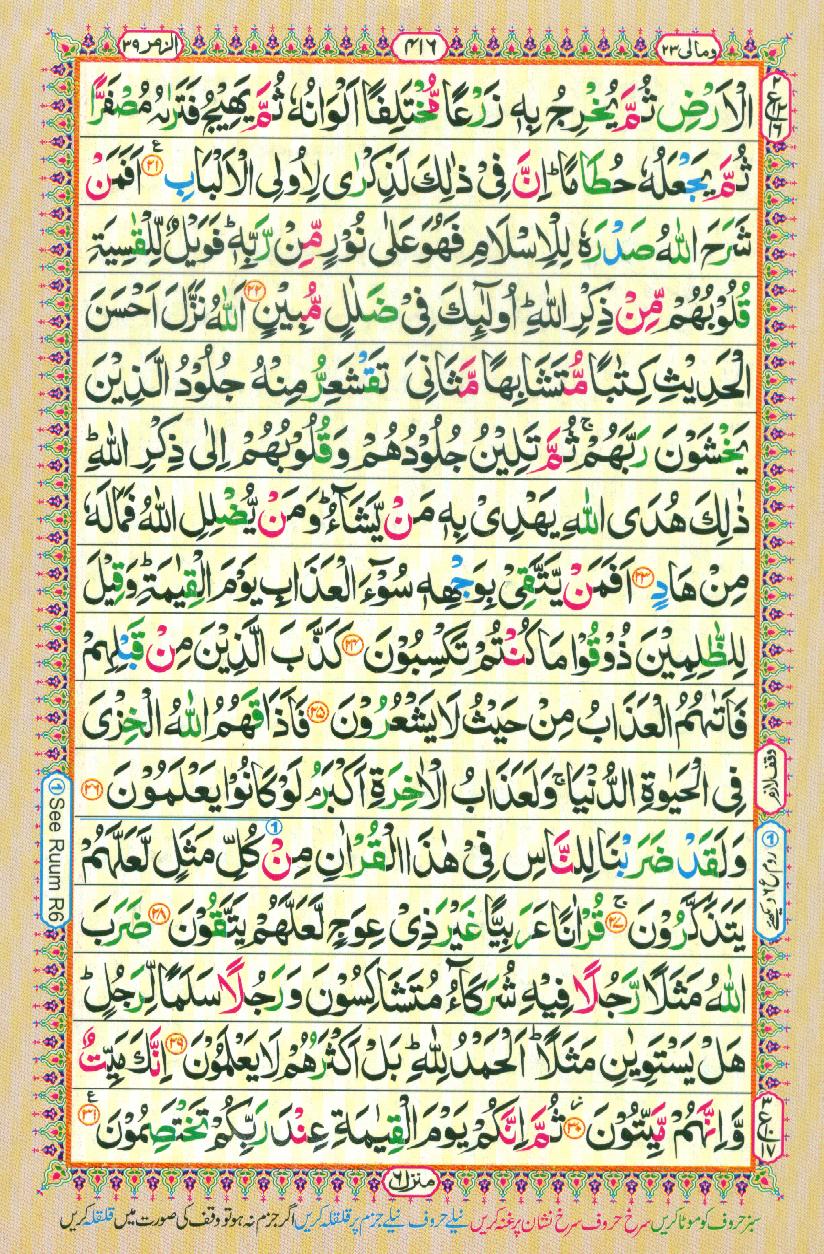 الزمر ۳۹
۴۱۶
ومالی ۲۳
الْاَرْضِ ثُمَّ يُخْرِجُ بِهٖ زَرْعًا مُّخْتَلِفًا اَلْوَانُهٗ ثُمَّ يَهِيْجُ فَتَرٰىهُ مُصْفَرًّا
ثُمَّ يَجْعَلُهٗ حُطَامًا ؕ اِنَّ فِىْ ذٰلِكَ لَذِكْرٰى لِاُولِى الْاَلْبَابِ ﴿۲۱﴾ اَفَمَنْ
شَرَحَ اللّٰهُ صَدْرَهٗ لِلْاِسْلَامِ فَهُوَ عَلٰى نُوْرٍ مِّنْ رَّبِّهٖ ؕ فَوَيْلٌ لِّلْقٰسِيَةِ
قُلُوْبُهُمْ مِّنْ ذِكْرِ اللّٰهِ ؕ اُولٰٓئِكَ فِىْ ضَلٰلٍ مُّبِيْنٍ ﴿۲۲﴾ اَللّٰهُ نَزَّلَ اَحْسَنَ
الْحَدِيْثِ كِتٰبًا مُّتَشَابِهًا مَّثَانِىَ تَقْشَعِرُّ مِنْهُ جُلُوْدُ الَّذِيْنَ
يَخْشَوْنَ رَبَّهُمْ ۚ ثُمَّ تَلِيْنُ جُلُوْدُهُمْ وَقُلُوْبُهُمْ اِلٰى ذِكْرِ اللّٰهِ ؕ
ذٰلِكَ هُدَى اللّٰهِ يَهْدِىْ بِهٖ مَنْ يَّشَآءُ ؕ وَمَنْ يُّضْلِلِ اللّٰهُ فَمَا لَهٗ
مِنْ هَادٍ ﴿۲۳﴾ اَفَمَنْ يَّتَّقِىْ بِوَجْهِهٖ سُوْٓءَ الْعَذَابِ يَوْمَ الْقِيٰمَةِ ؕ وَقِيْلَ
لِلظّٰلِمِيْنَ ذُوْقُوْا مَا كُنْتُمْ تَكْسِبُوْنَ ﴿۲۴﴾ كَذَّبَ الَّذِيْنَ مِنْ قَبْلِهِمْ
فَاَتٰىهُمُ الْعَذَابُ مِنْ حَيْثُ لَا يَشْعُرُوْنَ ﴿۲۵﴾ فَاَذَاقَهُمُ اللّٰهُ الْخِزْىَ
فِى الْحَيٰوةِ الدُّنْيَا ۚ وَلَعَذَابُ الْاٰخِرَةِ اَكْبَرُ ۘ لَوْ كَانُوْا يَعْلَمُوْنَ ﴿۲۶﴾
وقف لازم
وَلَقَدْ ضَرَبْنَا لِلنَّاسِ فِىْ هٰذَا الْقُرْاٰنِ مِنْ كُلِّ مَثَلٍ لَّعَلَّهُمْ
① See Ruum R6
يَتَذَكَّرُوْنَ ﴿۲۷﴾ ۚ قُرْاٰنًا عَرَبِيًّا غَيْرَ ذِىْ عِوَجٍ لَّعَلَّهُمْ يَتَّقُوْنَ ﴿۲۸﴾ ضَرَبَ
اللّٰهُ مَثَلًا رَّجُلًا فِيْهِ شُرَكَآءُ مُتَشَاكِسُوْنَ وَرَجُلًا سَلَمًا لِّرَجُلٍ ؕ
هَلْ يَسْتَوِيٰنِ مَثَلًا ؕ اَلْحَمْدُ لِلّٰهِ ۚ بَلْ اَكْثَرُهُمْ لَا يَعْلَمُوْنَ ﴿۲۹﴾ اِنَّكَ مَيِّتٌ
وَّاِنَّهُمْ مَّيِّتُوْنَ ﴿۳۰﴾ ثُمَّ اِنَّكُمْ يَوْمَ الْقِيٰمَةِ عِنْدَ رَبِّكُمْ تَخْتَصِمُوْنَ ﴿۳۱﴾
منزل ۶
سبز حروف کو موٹا کریں سرخ حروف سرخ نشان پر غنہ کریں نیلے حروف نیلے جزم پر قلقلہ کریں اگر جزم نہ ہو تو وقف کی صورت میں قلقلہ کریں